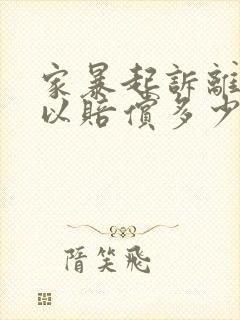 家暴起訴離
以賠償多少
隋笑飛